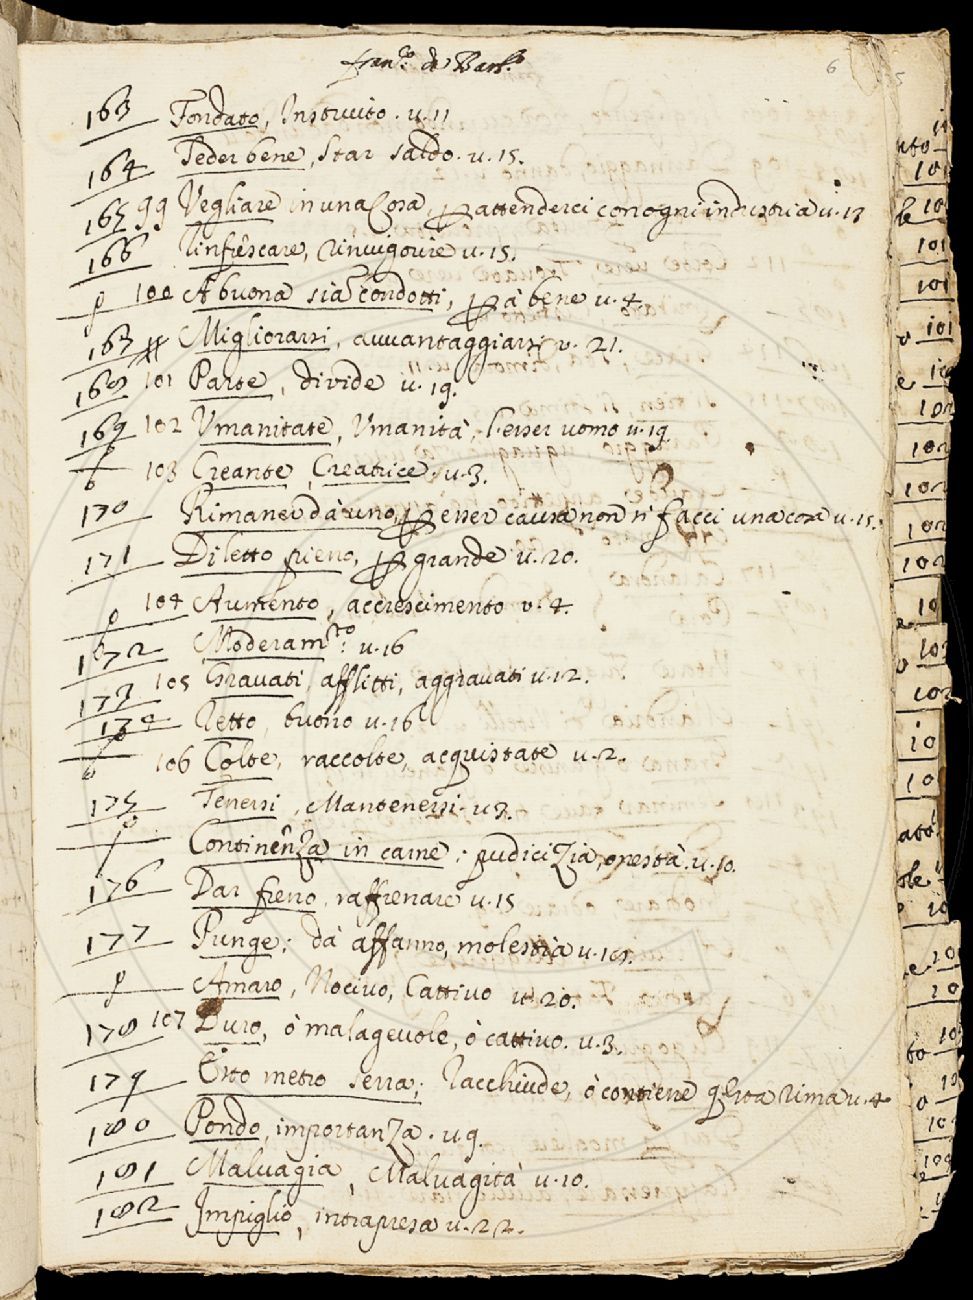 fran.co da Barb.o
6
163 Fondato, Instruito. u. 11
164 Seder bene, star saldo. u. 15.
165 99 Vegliare in una Cosa, p attenderci con ogni industria u. 13
166 Rinfrescare, rinuigorire u. 15.
100 A buona sia Condotti, p à bene u. 4.
Migliorarsi, auuantaggiarsi u. 21.
168 101 Parte, divide u. 19.
169 102 Vmanitate, Vmanità, l'esser uomo u. 19.
103 Creante, Creatrice. u. 3.
170 Rimaner dà uno, p esser causa non si facci una cosa u. 15.
171 Diletto pieno, p grande u. 20.
104 Aumento, accrescimento u. 4.
172 Moderam.to: u. 16
173 105 Gravati, afflitti, aggravati u. 12.
174 Retto, buono u. 16
106 Colte, raccolte, acquistate u. 2.
175 Tenersi, Mantenersi. u. 3.
Continenza in carne; pudicizia, onestà u. 10.
176 Dar freno, raffrenare u. 15
177 Punge; dà affanno, molestia u.
Amaro, Nocivo, Cattivo u. 20.
178 107 Duro, ò malagevole, ò cattivo. u. 3.
179 Esto metro serra; Racchiude, ò contiene qsta rima u. 4
180 Pondo, importanza. u. 9.
181 Malvagia, Malvagità u. 10.
182 Impiglio, intrapresa u. 22.